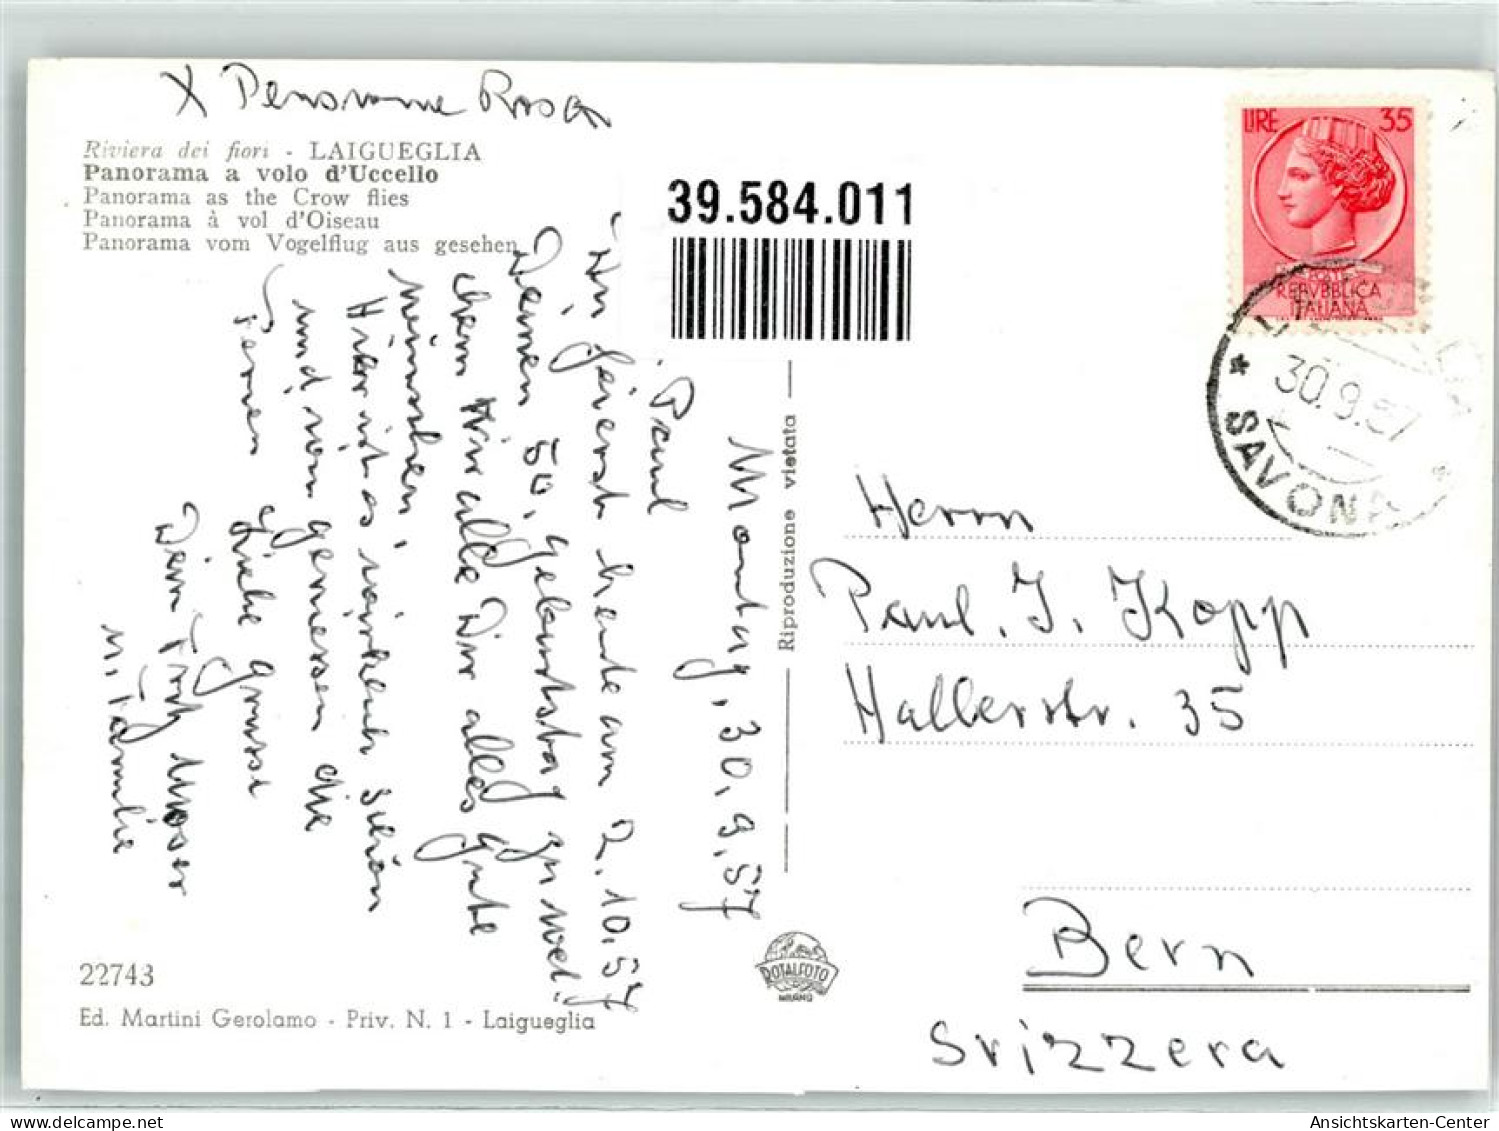 X Pensione Rosa
Riviera dei fiori - LAIGUEGLIA
Panorama a volo d'Uccello
Panorama as the Crow flies
Panorama à vol d'Oiseau
Panorama vom Vogelflug aus gesehen
39.584.011
LIRE 35
POSTE
REPVBBLICA
ITALIANA
30.9.57
* SAVONA *
Montag, 30.9.57
Paul
Du feierst heute am 2.10.57
Deinen 50. Geburtstag zu wel-
chem Wir alle Dir alles gute
wünschen.
Hier ist es wirklich schön
und wir geniessen die
Ferien Liebe Grüsse
Dein Fritz Moser
u. Familie
Riproduzione vietata
Herrn
Paul. J. Kopp
Hallerstr. 35
Bern
Svizzera
22743
Ed. Martini Gerolamo - Priv. N. 1 - Laigueglia
ROTALFOTO
MILANO
Ansichtskarten-Center